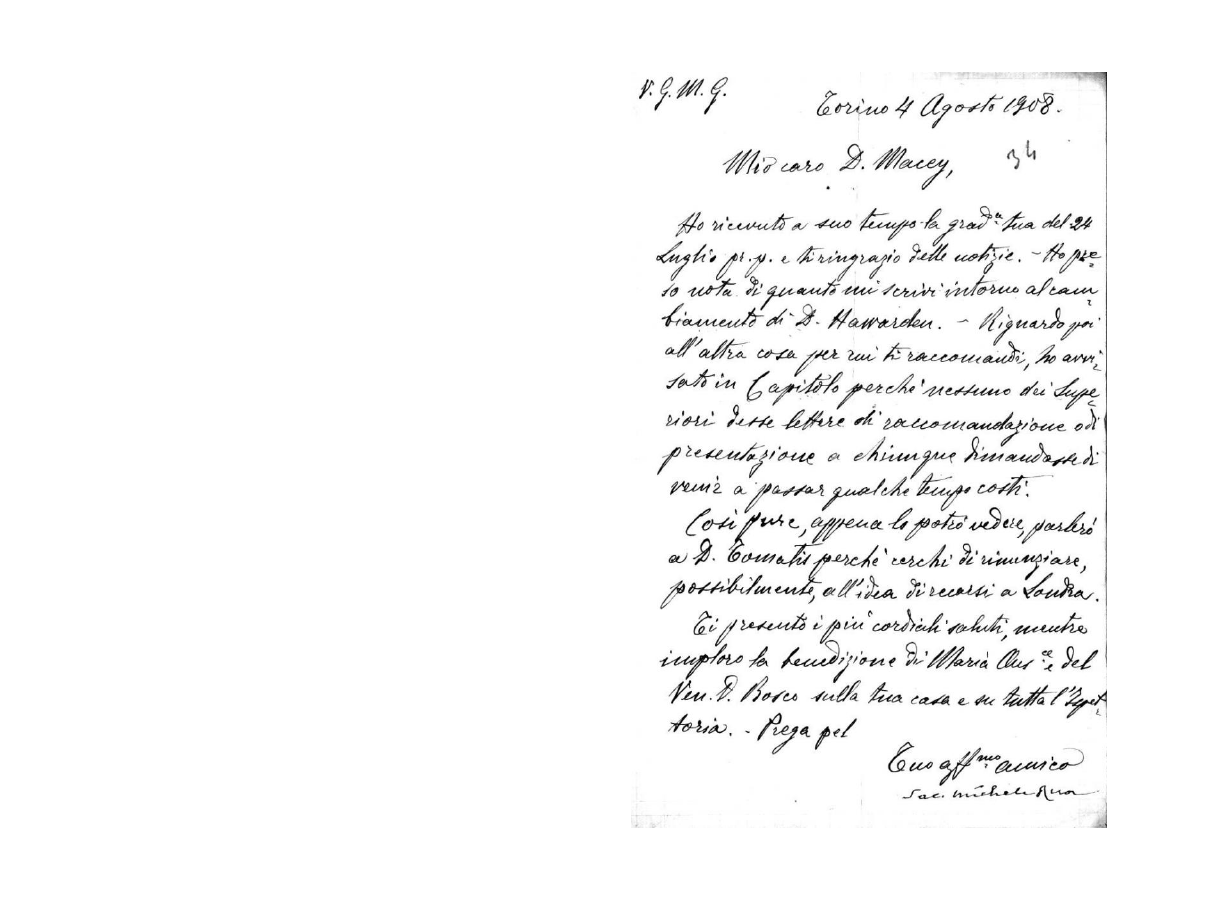 V. G. M. G.
Torino 4 Agosto 1908.
34
Mio caro D. Macey,
Ho ricevuto a suo tempo la gradª tua del 24
Luglio pr. p. e ti ringrazio delle notizie. - Ho pre=
so nota di quanto mi scrivi intorno al cam=
biamento di D. Hawarden. - Riguardo poi
all'altra cosa per cui ti raccomandi, ho avvi=
sato in Capitolo perché nessuno dei Supe=
riori desse lettere di raccomandazione o di
presentazione a chiunque dimandasse di
venir a passar qualche tempo costì.
Così pure, appena lo potrò vedere, parlerò
a D. Tomatis perché cerchi di rinunziare,
possibilmente, all'idea di recarsi a Londra.
Ti presento i più cordiali saluti, mentre
imploro la benedizione di Maria Aus.ce e del
Ven. D. Bosco sulla tua casa e su tutta l'Ispet=
toria. - Prega pel
Tuo aff.mo amico
Sac. Michele Rua